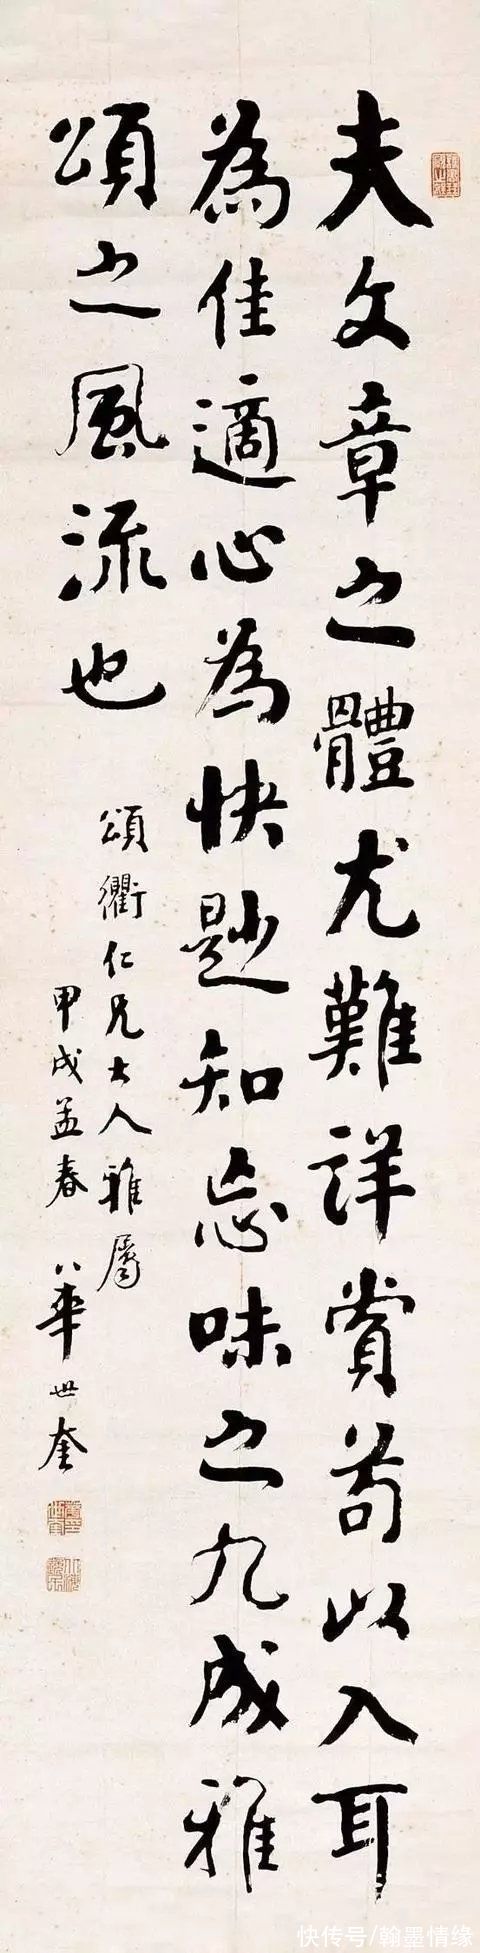 夫文章之體尤難詳賞苟以入耳
為佳適心為快尟知忘味之九成雅
頌之風流也
頌衢仁兄大人雅屬
甲戌孟春 華世奎
快传号/翰墨情缘